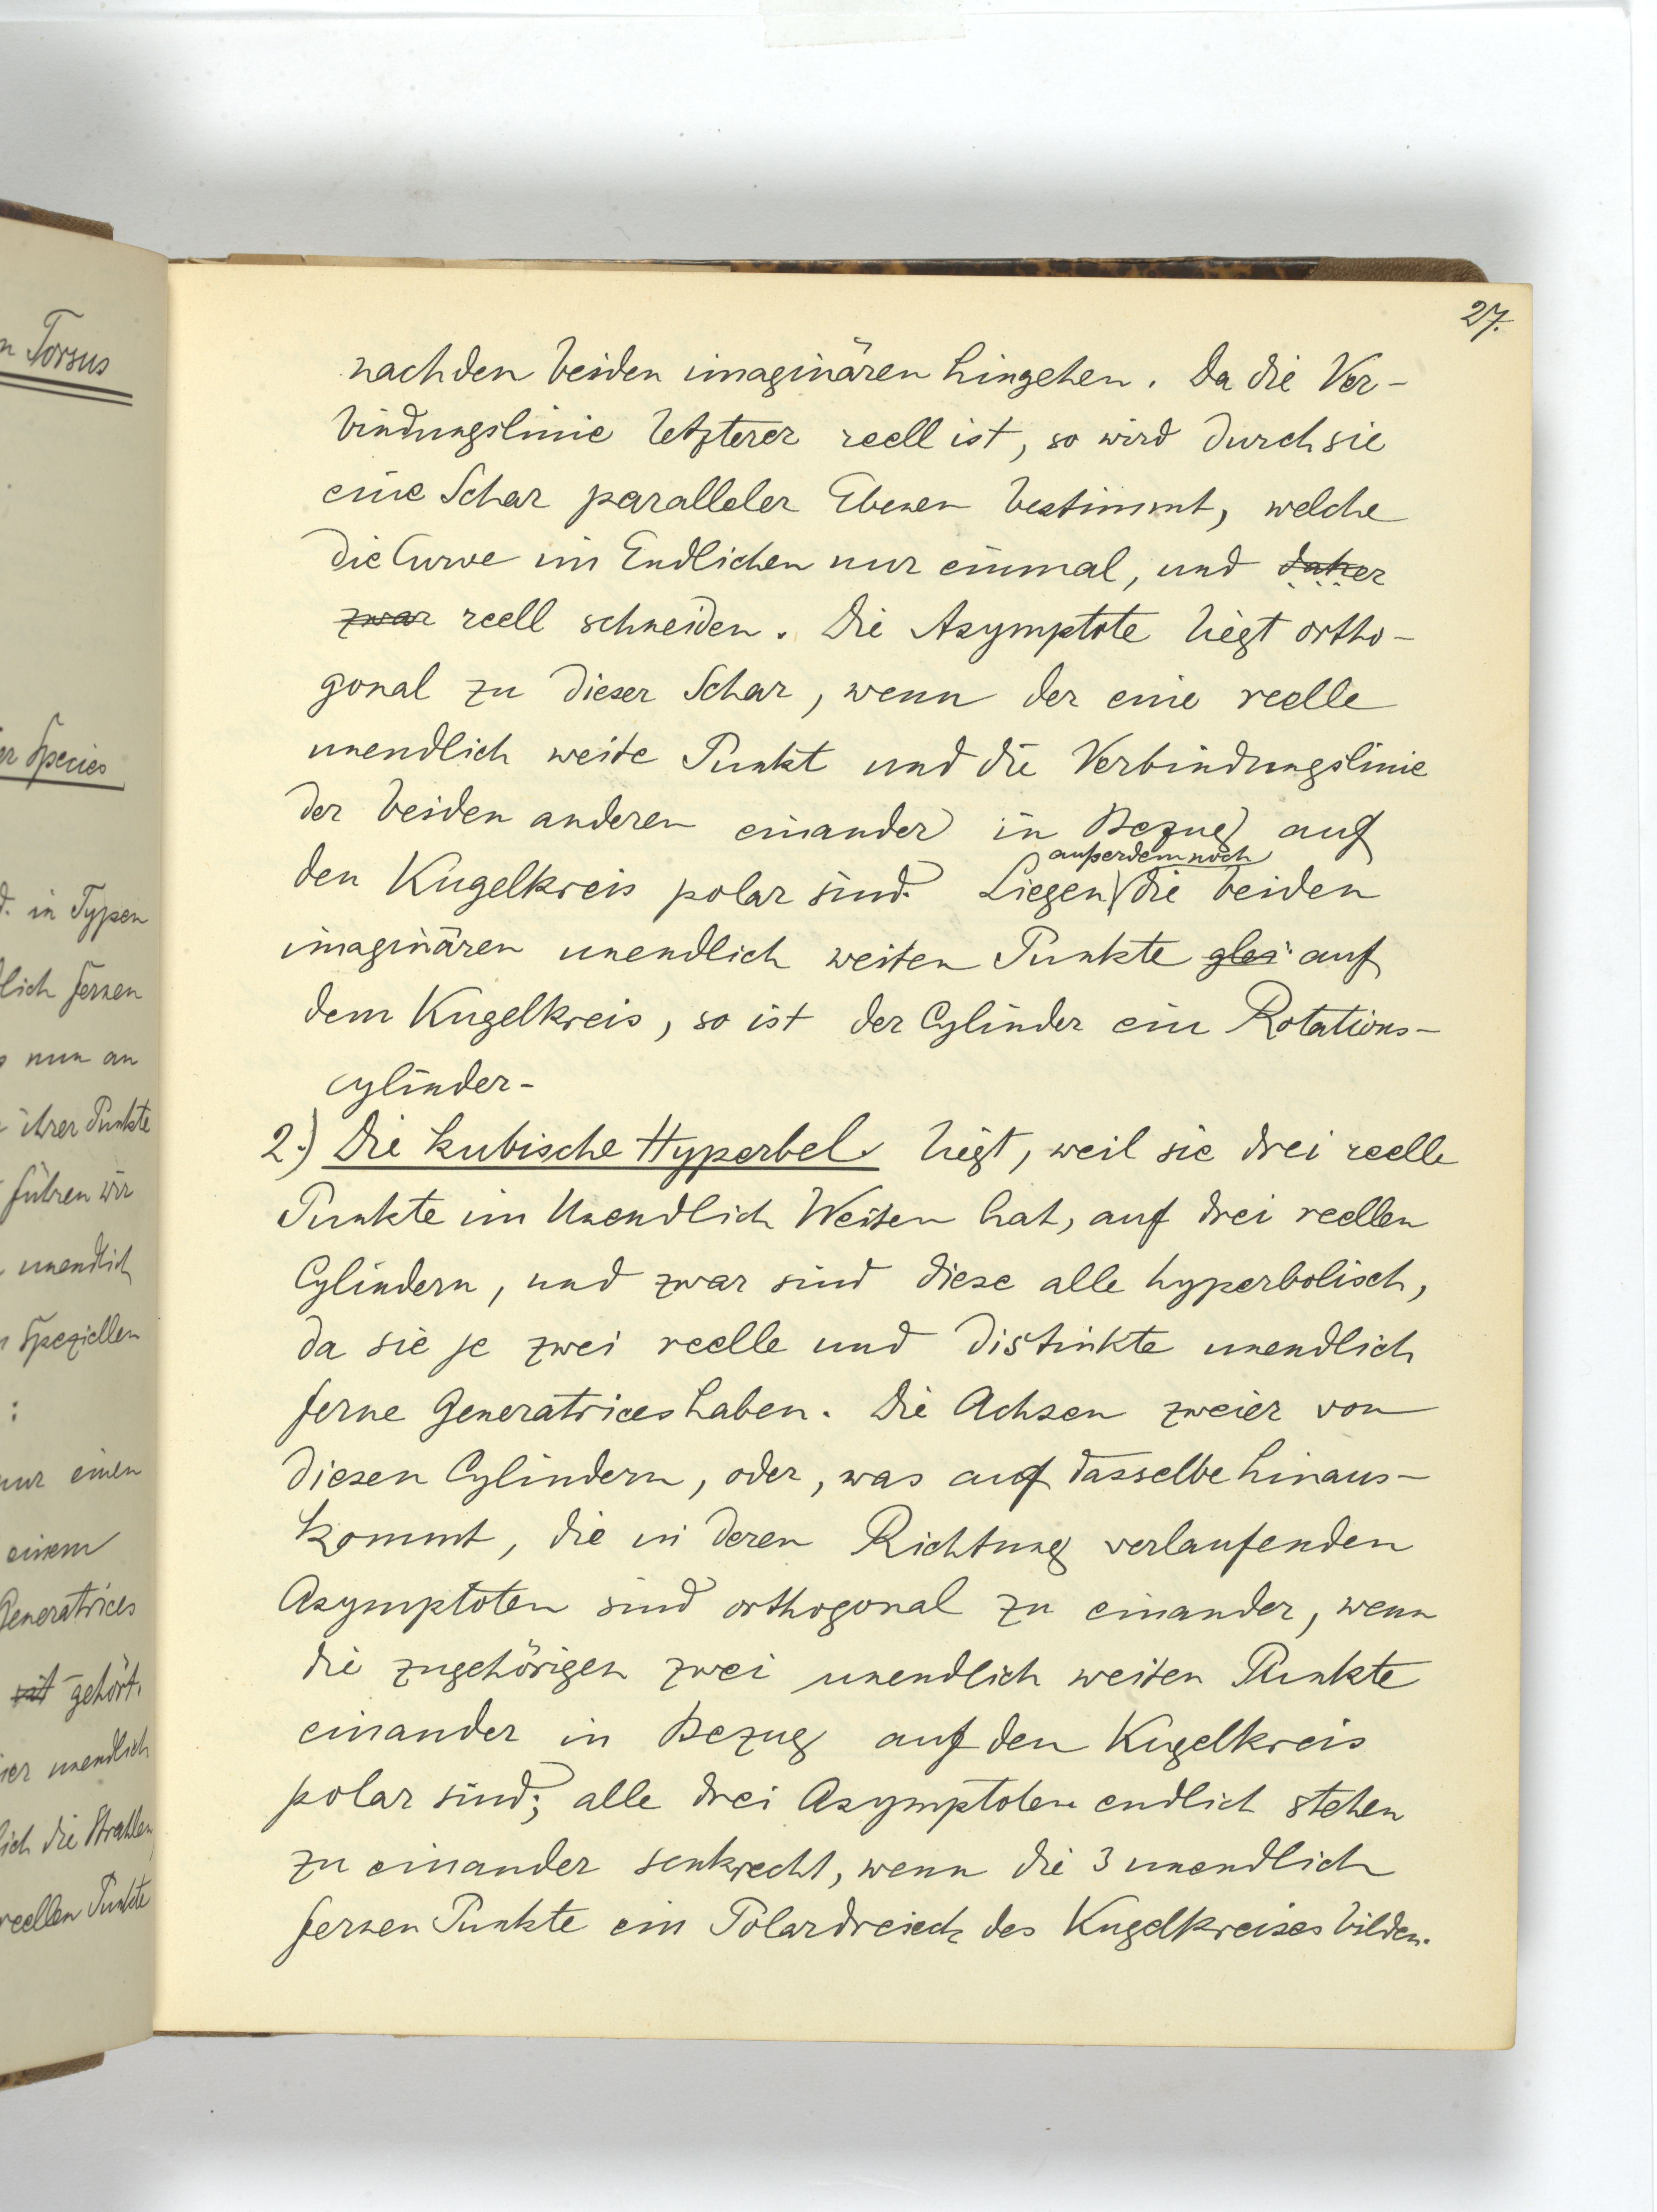 n Torsus
er Species
d. in Typen
lich fernen
s nun an
ihrer Punkte
führen wir
unendlich
n speziellen
:
nur einen
einem
Generatrices
gehört.
ier unendlich
lich die Strahlen
reellen Punkte
27.
nach den beiden imaginären hingehen. Da die Ver-
bindungslinie letzterer reell ist, so wird durch sie
eine Schar paralleler Ebenen bestimmt, welche
die Curve im Endlichen nur einmal, und daher
zwar reell schneiden. Die Asymptote liegt ortho-
gonal zu dieser Schar, wenn der eine reelle
unendlich weite Punkt und die Verbindungslinie
der beiden anderen einander in Bezug auf
den Kugelkreis polar sind. Liegen außerdem noch die beiden
imaginären unendlich weiten Punkte glei auf
dem Kugelkreis, so ist der Cylinder ein Rotations-
cylinder-
2.) Die kubische Hyperbel liegt, weil sie drei reelle
Punkte im Unendlich Weiten hat, auf drei reellen
Cylindern, und zwar sind diese alle hyperbolisch,
da sie je zwei reelle und distinkte unendlich
ferne Generatrices haben. Die Achsen zweier von
diesen Cylindern, oder, was auf dasselbe hinaus-
kommt, die in deren Richtung verlaufenden
Asymptoten sind orthogonal zu einander, wenn
die zugehörigen zwei unendlich weiten Punkte
einander in Bezug auf den Kugelkreis
polar sind; alle drei Asymptoten endlich stehen
zu einander senkrecht, wenn die 3 unendlich
fernen Punkte ein Polardreieck des Kugelkreises bilden.